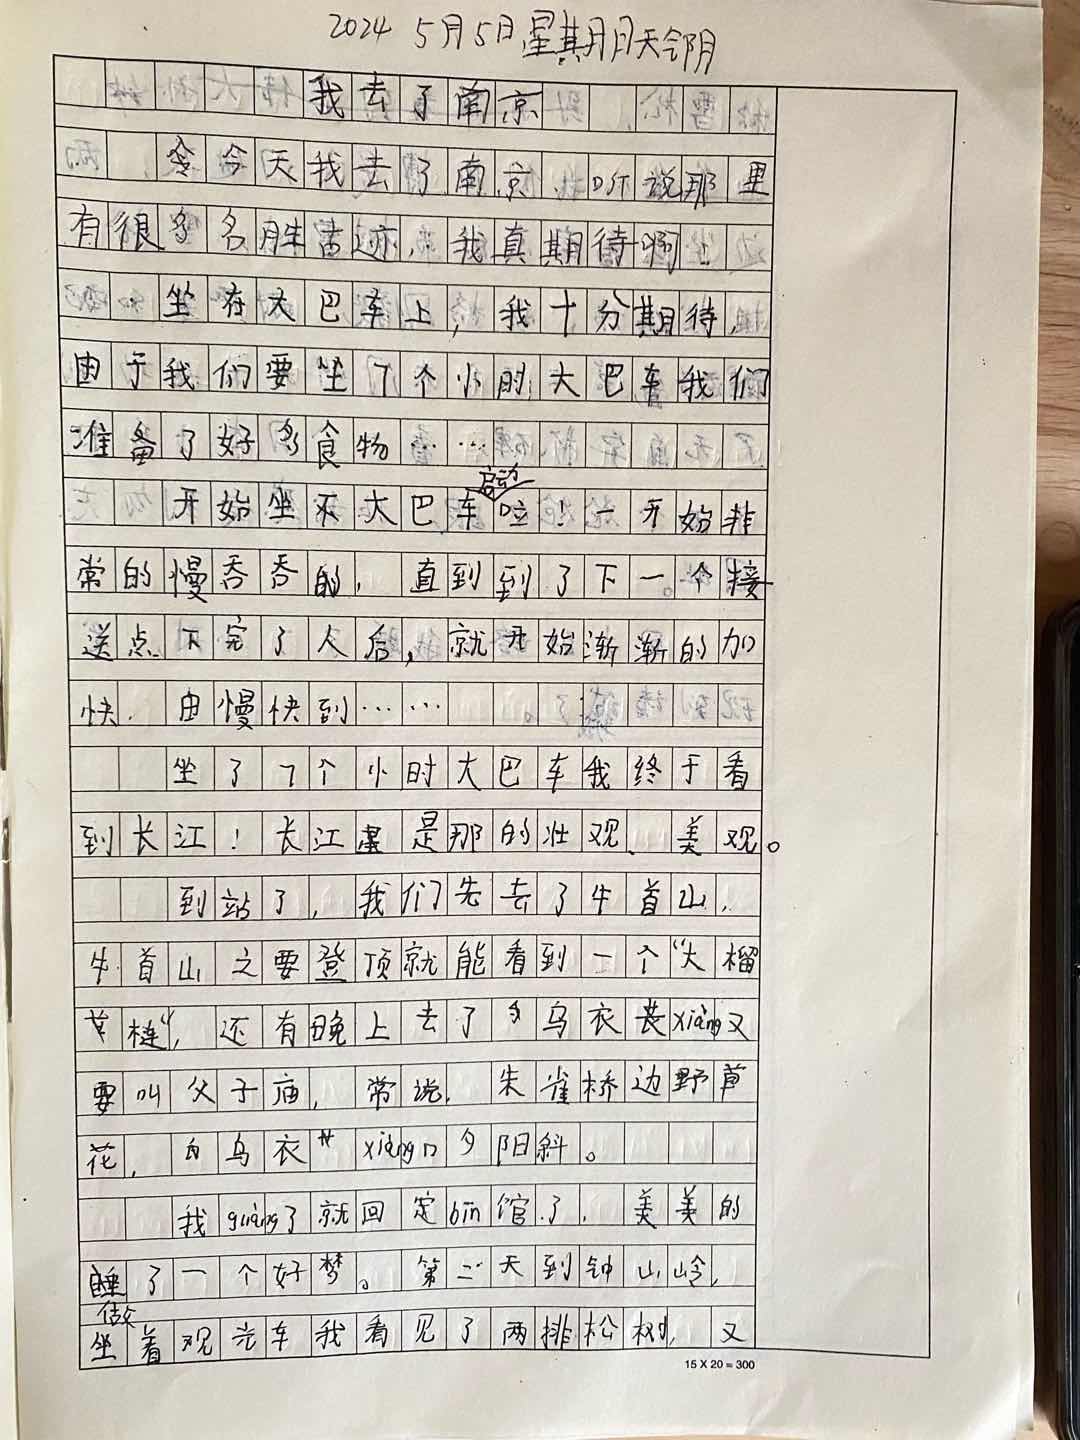 2024 5月5日星期日天气阴
我去了南京
今天我去了南京,听说那里
有很多名胜古迹,我真期待啊!
坐在大巴车上,我十分期待,
由于我们要坐7个小时大巴车我们
准备了好多食物……
启动
开始坐不大巴车啦!一开始非
常的慢吞吞的,直到到了下一个接
送点下完了人后,就开始渐渐的加
快.由慢快到……
坐了7个小时大巴车我终于看
到长江!长江是那的壮观、美观。
到站了,我们先去了牛首山,
牛首山之要登顶就能看到一个“大榴
梿”,还有晚上去了乌衣xiàng又
要叫父子庙,常说,朱雀桥边野草
花,乌衣xiàng口夕阳斜。
我guàng了就回定bīn馆了,美美的
睡了一个好梦。第二天到钟山岭,
做
坐着观光车我看见了两排松树,又
15 X 20 = 300